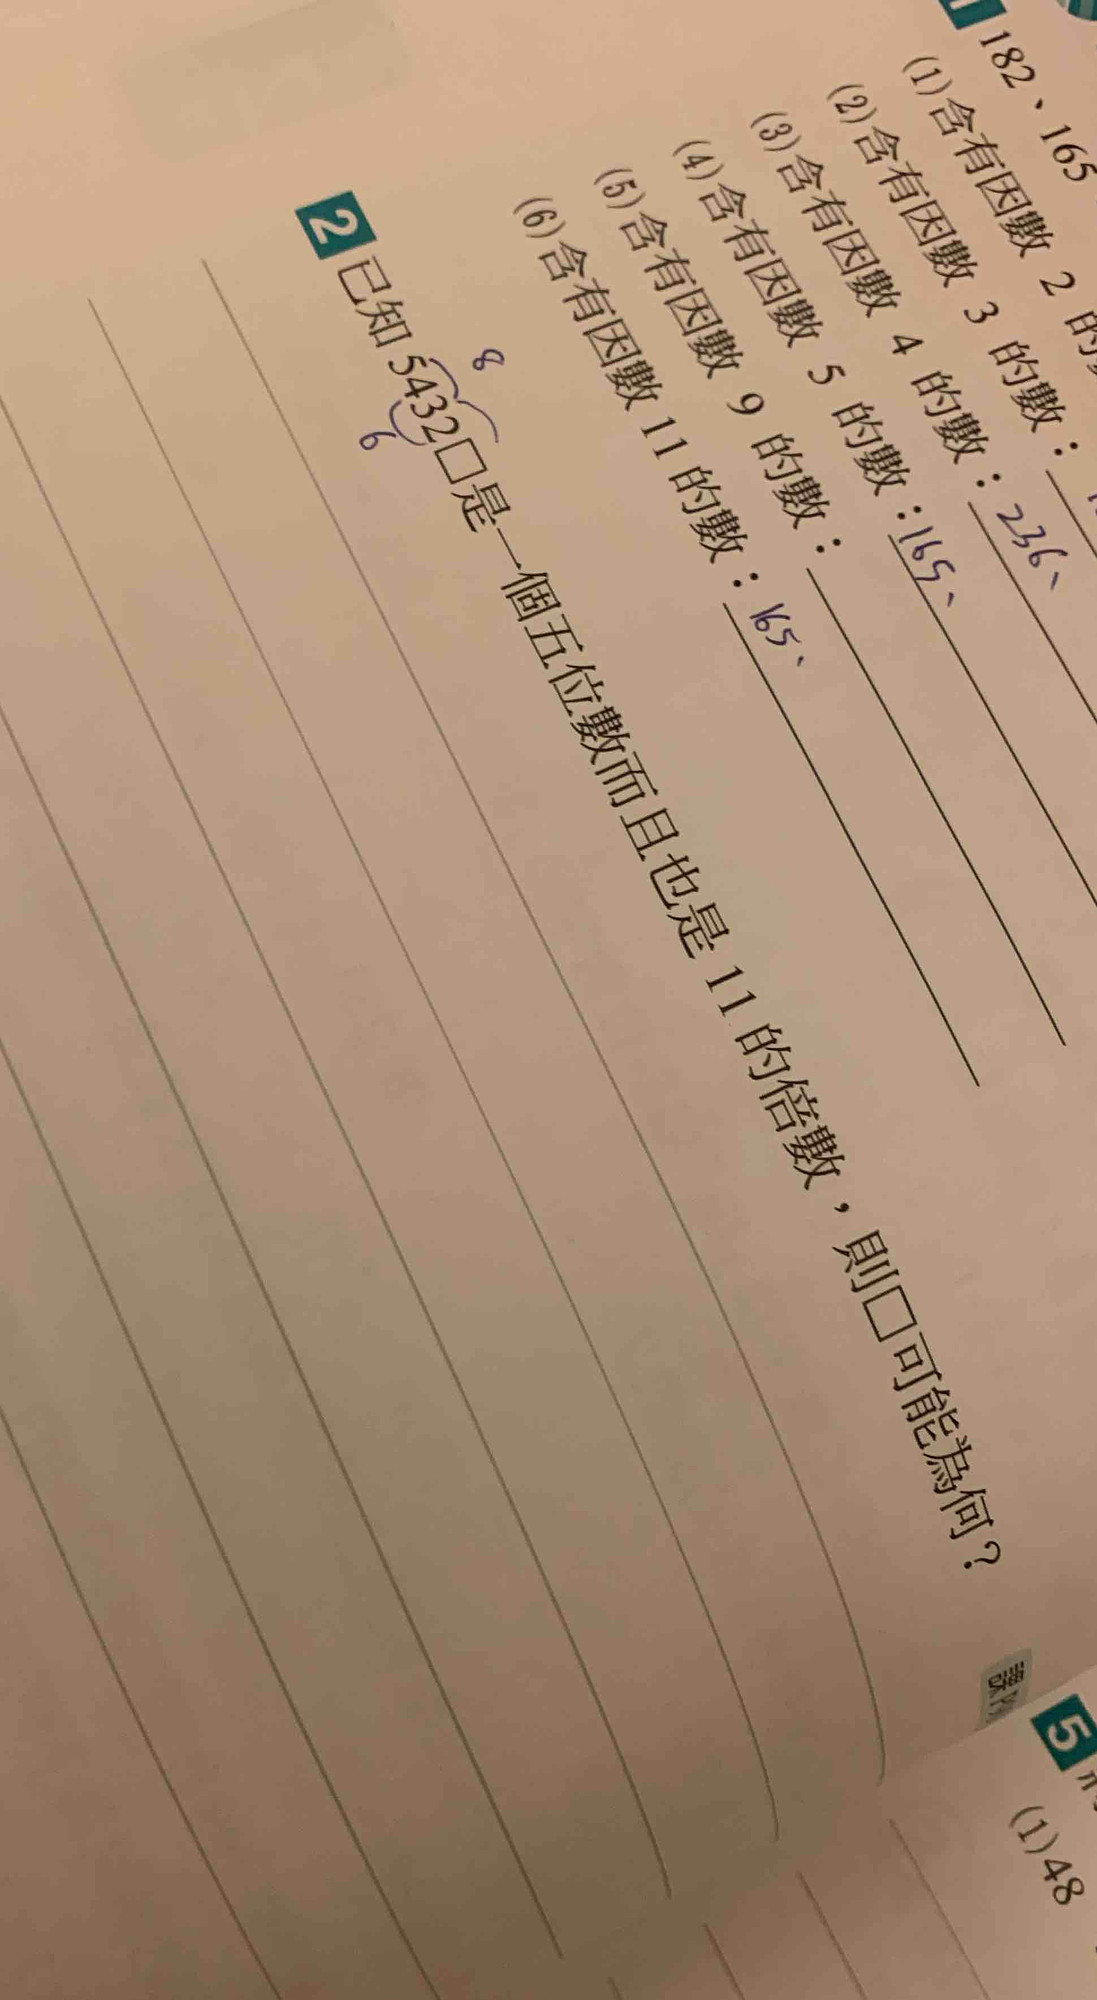 182、165
(1)含有因數 2 的
(2)含有因數 3 的數：
(3)含有因數 4 的數：236、
(4)含有因數 5 的數：165、
(5)含有因數 9 的數：
(6)含有因數 11 的數：165、
2 已知 5432□是一個五位數而且也是 11 的倍數，則□可能為何？
8
6
課
5
(1)48